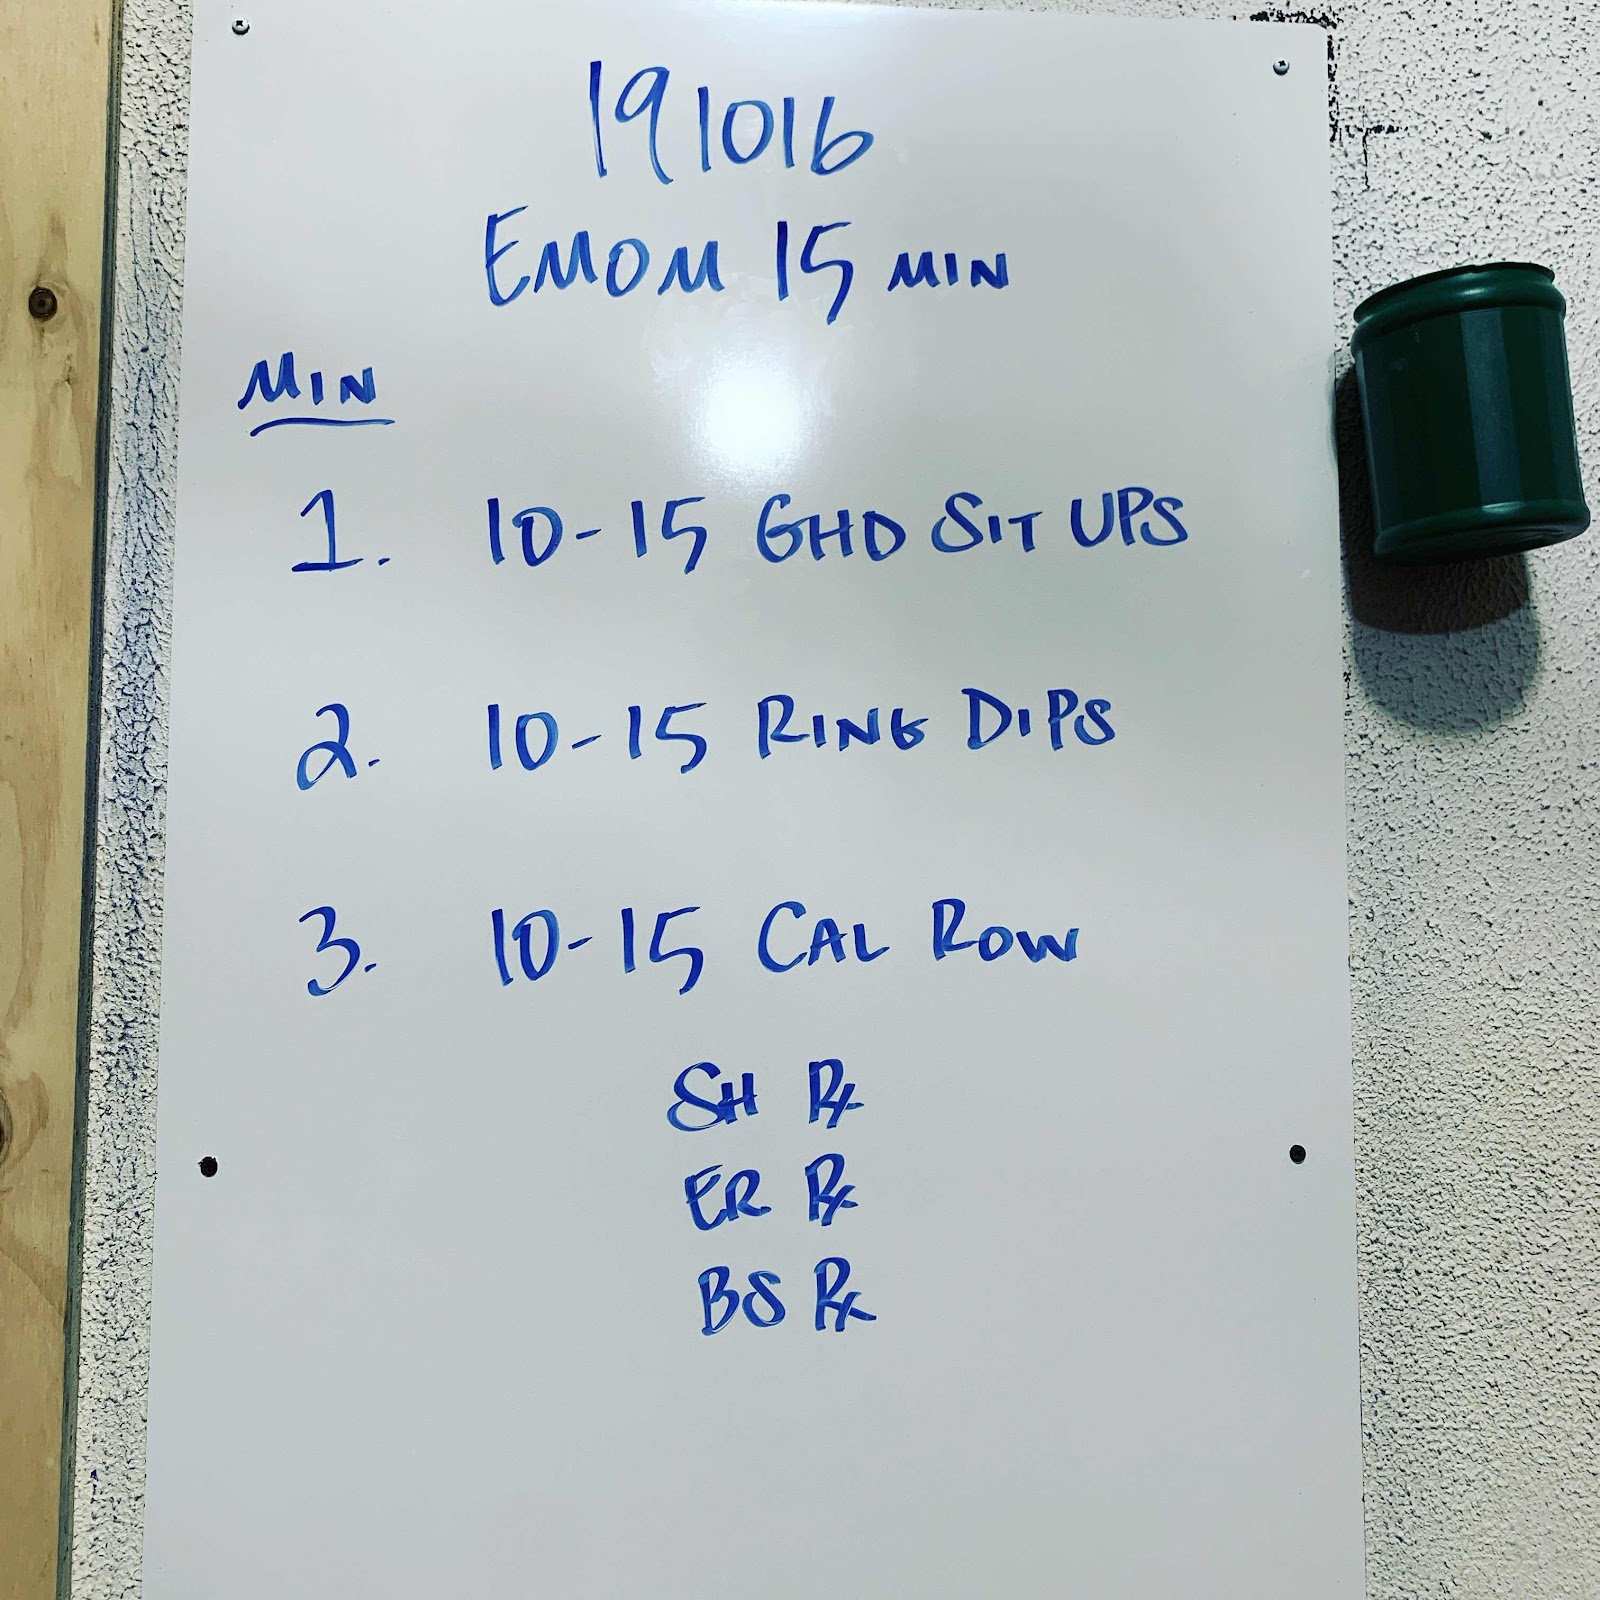 191016
EMOM 15 MIN
MIN
1. 10-15 GHD SIT UPS
2. 10-15 RING DIPS
3. 10-15 CAL ROW
SH Rx
ER Rx
BS Rx